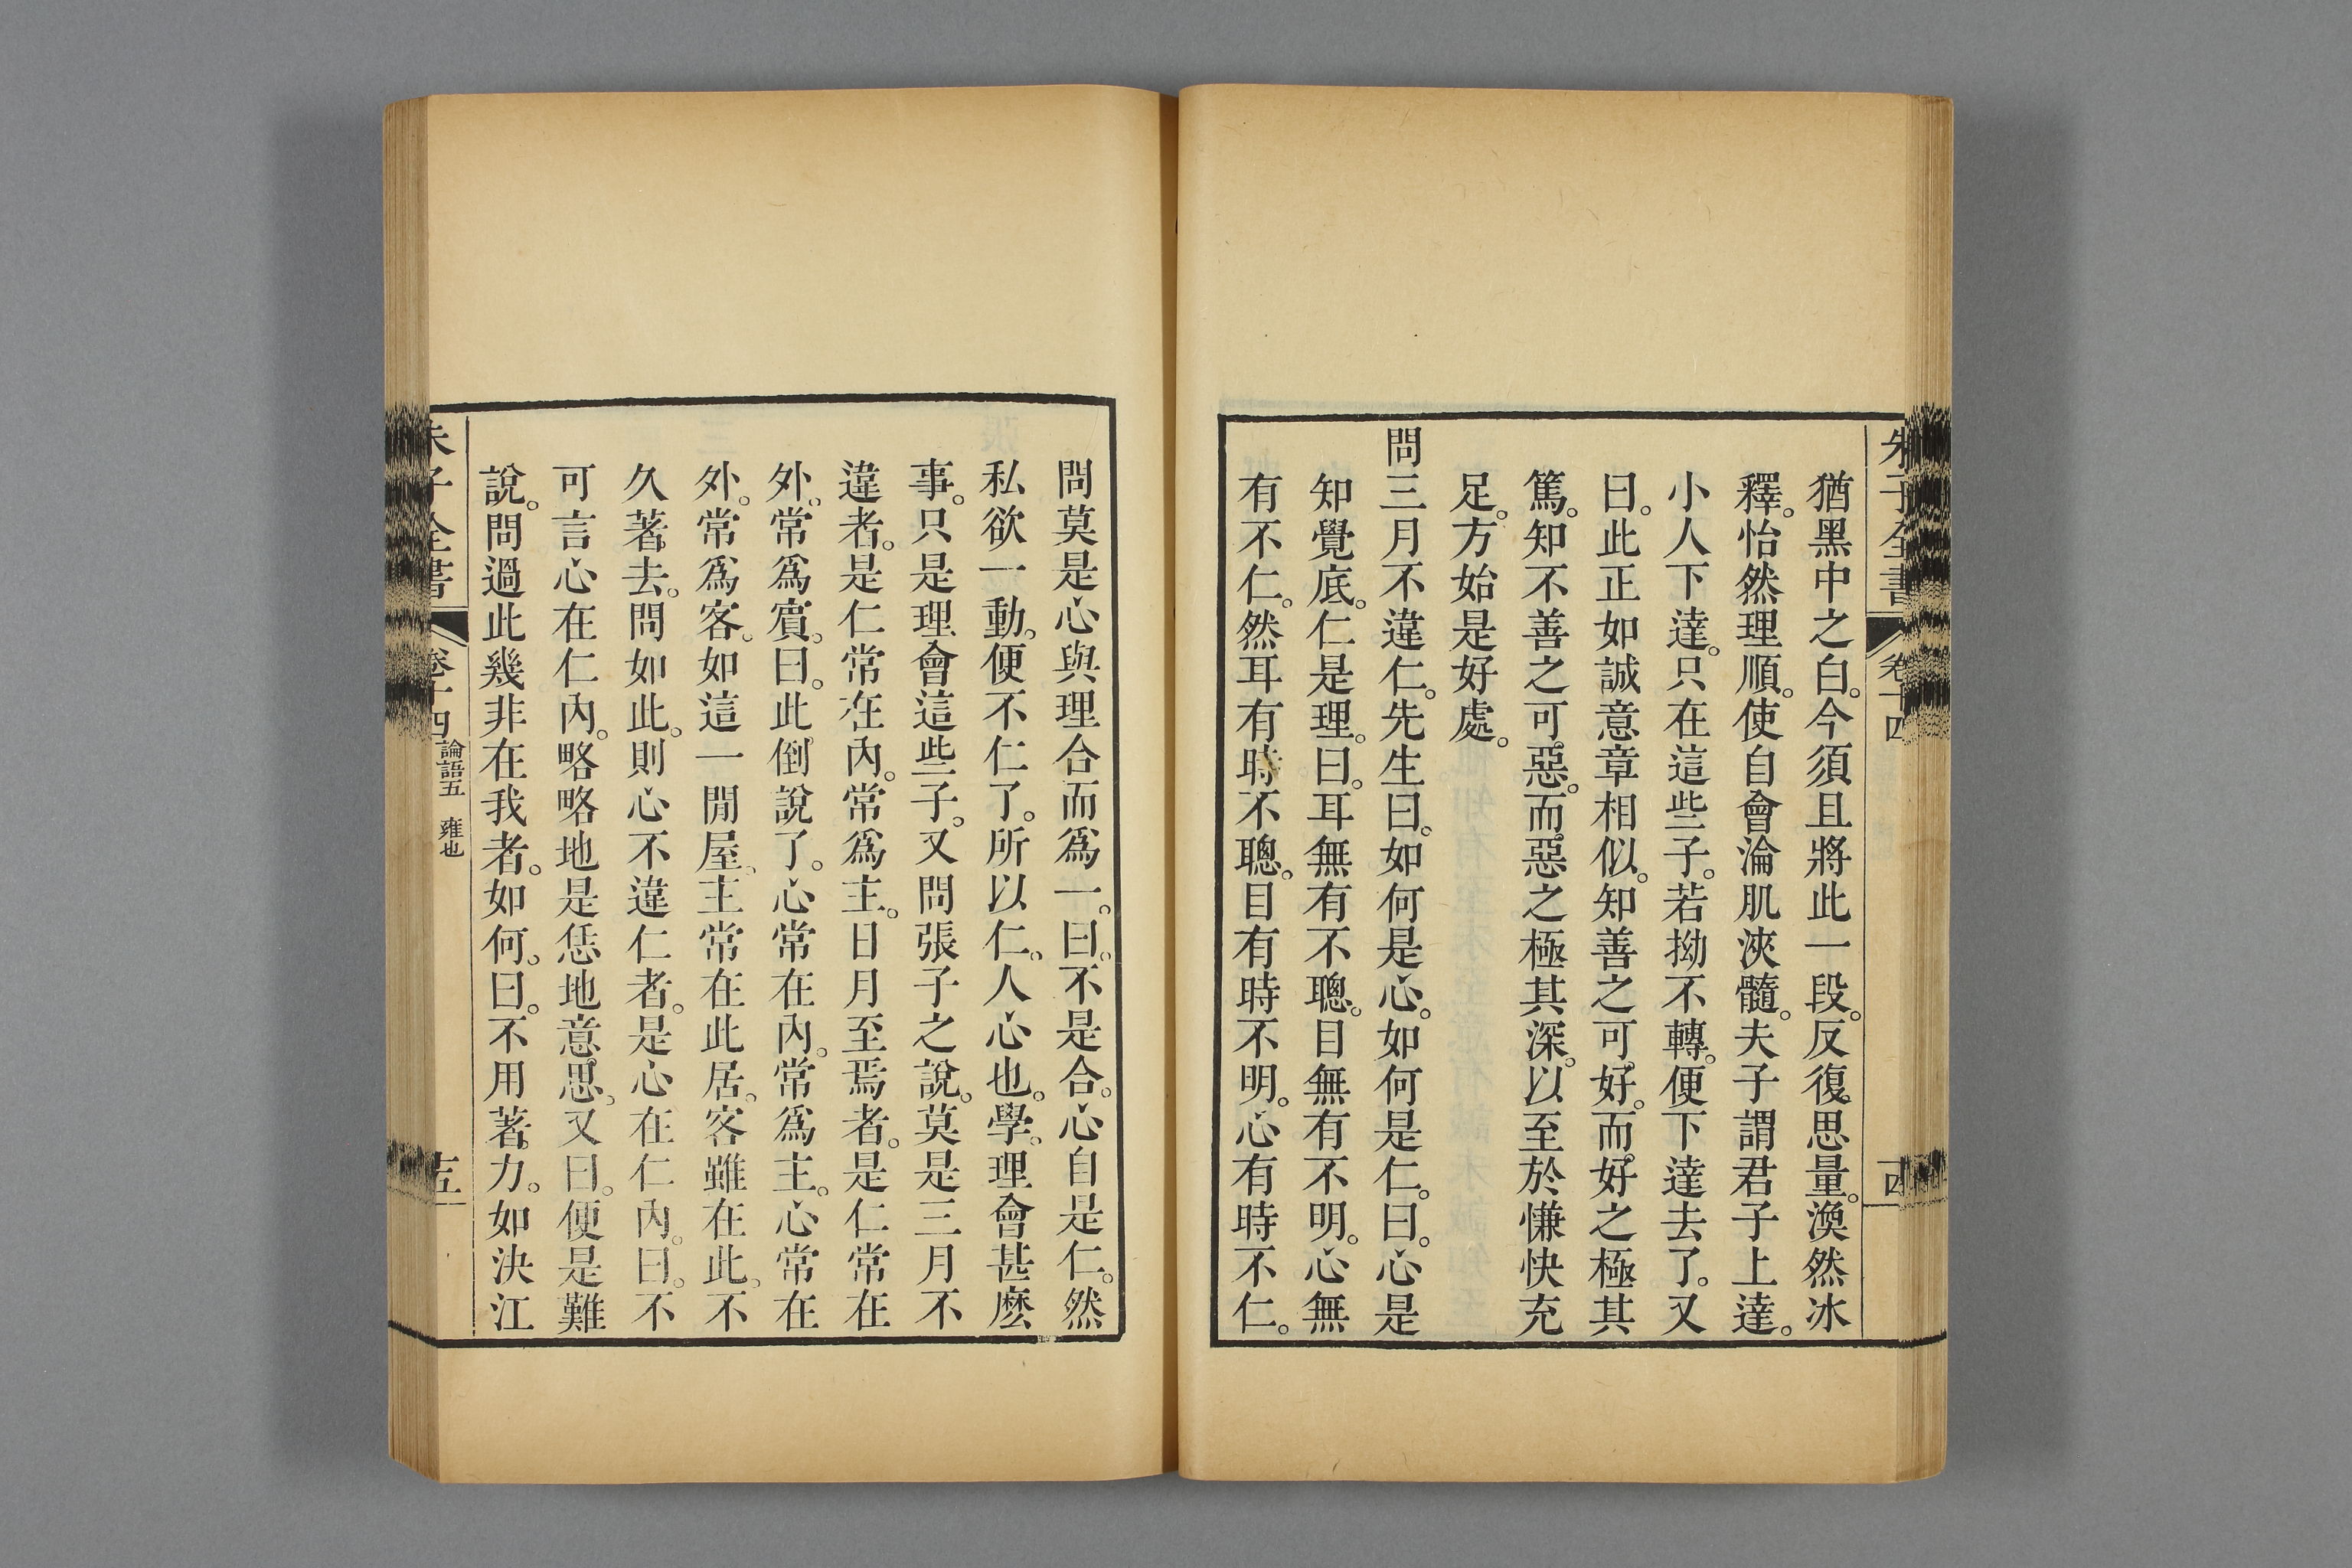 朱子全書 卷十四
猶黑中之白。今須且將此一段。反復思量。渙然冰
釋。怡然理順。使自會淪肌浹髓。夫子謂君子上達。
小人下達。只在這些子。若拗不轉。便下達去了。又
曰。此正如誠意章相似。知善之可好。而好之極其
篤。知不善之可惡。而惡之極其深。以至於慊快充
足。方始是好處。
問三月不違仁。先生曰。如何是心。如何是仁。曰。心是
知覺底。仁是理。曰。耳無有不聰。目無有不明。心無
有不仁。然耳有時不聰。目有時不明。心有時不仁。
問莫是心與理合而爲一。曰。不是合。心自是仁。然
私欲一動。便不仁了。所以仁。人心也。學。理會甚麽
事。只是理會這些子。又問張子之說。莫是三月不
違者。是仁常在內。常爲主。日月至焉者。是仁常在
外。常爲賓。曰。此倒說了。心常在內。常爲主。心常在
外。常爲客。如這一閒屋。主常在此居。客雖在此。不
久著去。問如此。則心不違仁者。是心在仁內。曰。不
可言心在仁內。略略地是恁地意思。又曰。便是難
說。問過此幾非在我者。如何。曰。不用著力。如決江
朱子全書 卷十四 論語五 雍也 十五